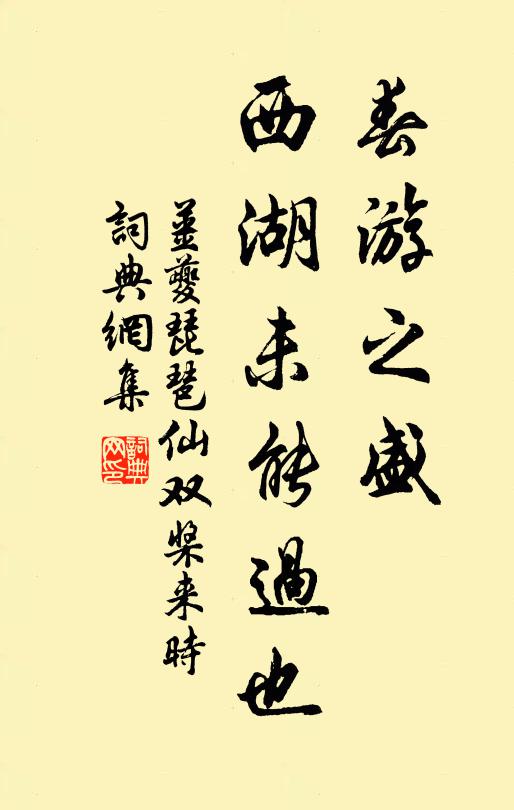 春游之盛
西湖未能過也
姜夔琵琶仙双桨来時
詞典網集
詞典
网印